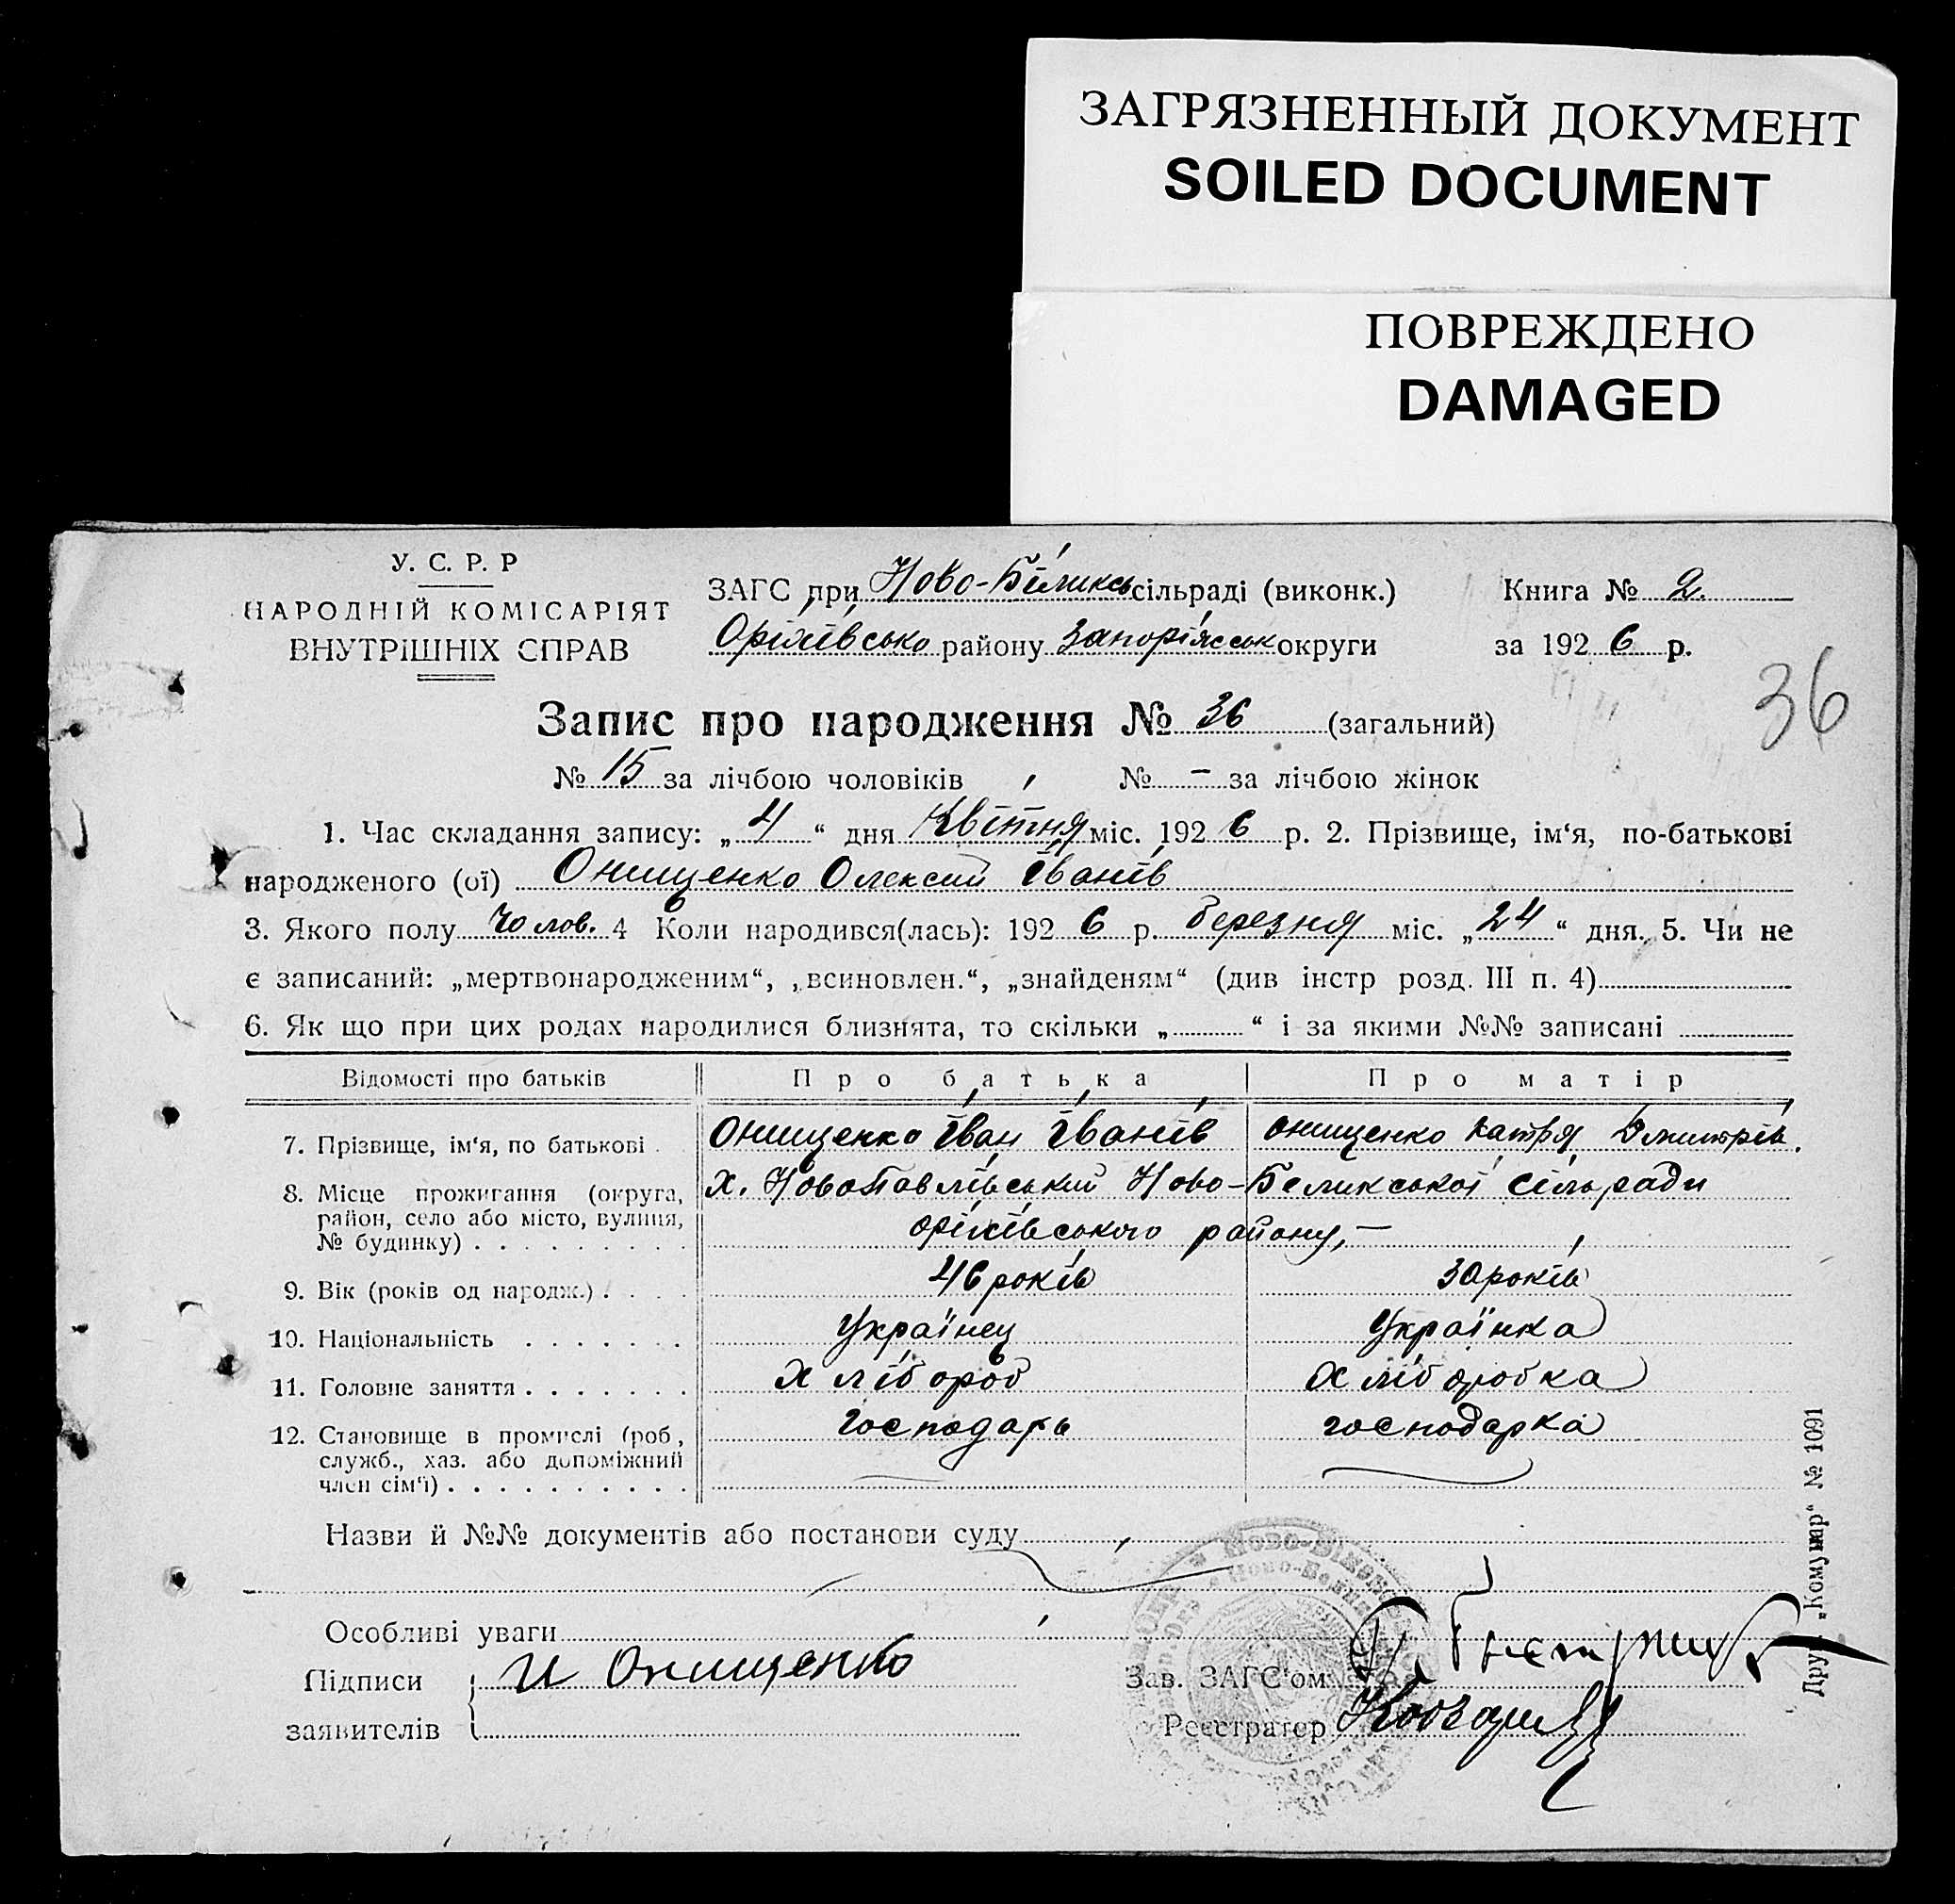 ЗАГРЯЗНЕННЫЙ ДОКУМЕНТ
SOILED DOCUMENT
ПОВРЕЖДЕНО
DAMAGED
У. С. Р. Р
НАРОДНІЙ КОМІСАРІЯТ
ВНУТРІШНІХ СПРАВ
ЗАГС при Ново-Біликсь сільраді (виконк.)
Оріхівсько району Запоріжськ округи
Книга № 2.
за 1926 р.
36
Запис про народження № 36 (загальний)
№ 15 за лічбою чоловіків № — за лічбою жінок
1. Час складання запису: „4“ дня Квітня міс. 1926 р. 2. Прізвище, ім‘я, по-батькові
народженого (ої) Онищенко Олексий Іванів
3. Якого полу чолов. 4 Коли народився(лась): 1926 р. березня міс. „24“ дня. 5. Чи не
є записаний: „мертвонародженим“, „всиновлен.“, „знайденям“ (див інстр розд. III п. 4)
6. Як що при цих родах народилися близнята, то скільки „ “ і за якими №№ записані
Відомості про батьків Про батька Про матір
7. Прізвище, ім‘я, по батькові . Онищенко Іван Іванів Онищенко Катря Дмитрів.
8. Місце прожигання (округа, х. НовоПавлівський Ново-Беликської сільради
район, село або місто, вулиця,
№ будинку) . . . . . . . . . оріхівського району, —
9. Вік (років од народж.) . . . . 46 років 30 років
10. Національність . . . . . . . Українец Українка
11. Головне заняття . . . . . . . Хлібороб Хліборобка
12. Становище в промислі (роб., господарь господарка
служб., хаз. або допоміжний
член сім‘ї) . . . . . . . . . .
Назви й №№ документів або постанови суду
Особливі уваги
Підписи И Онищенко
заявителів
Зав. ЗАГС‘ом
Реєстратор
Друк. „Комунар“ № 1091